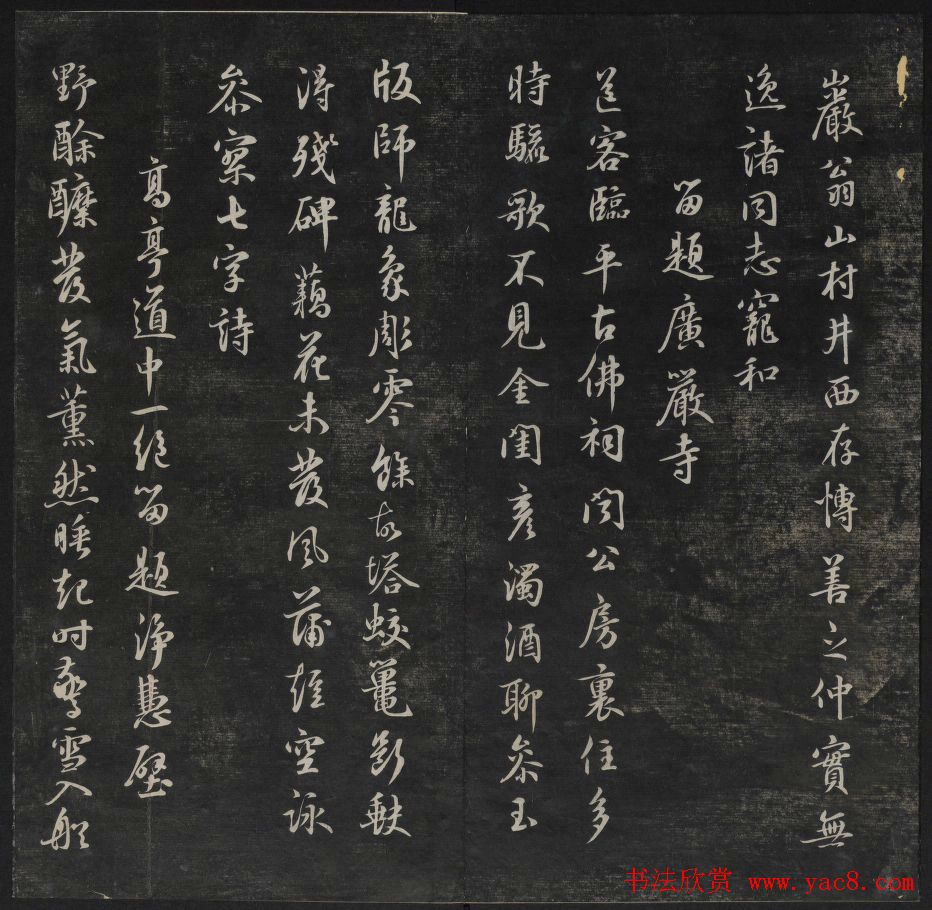 巖翁山村井西存博善之仲實無
逸諸同志寵和
留題廣嚴寺
送客臨平古佛祠閔公房裏住多
時驪歌不見金閨彥濁酒聊參玉
版師龍象彫零餘故塔蛟鼉斷
得殘碑藕花未發風蒲短空詠
參寥七字詩
高亭道中一絕留題淨慧壁
野酴醿發氣薰然睡起時驚雪入船
书法欣赏 www.yac8.com